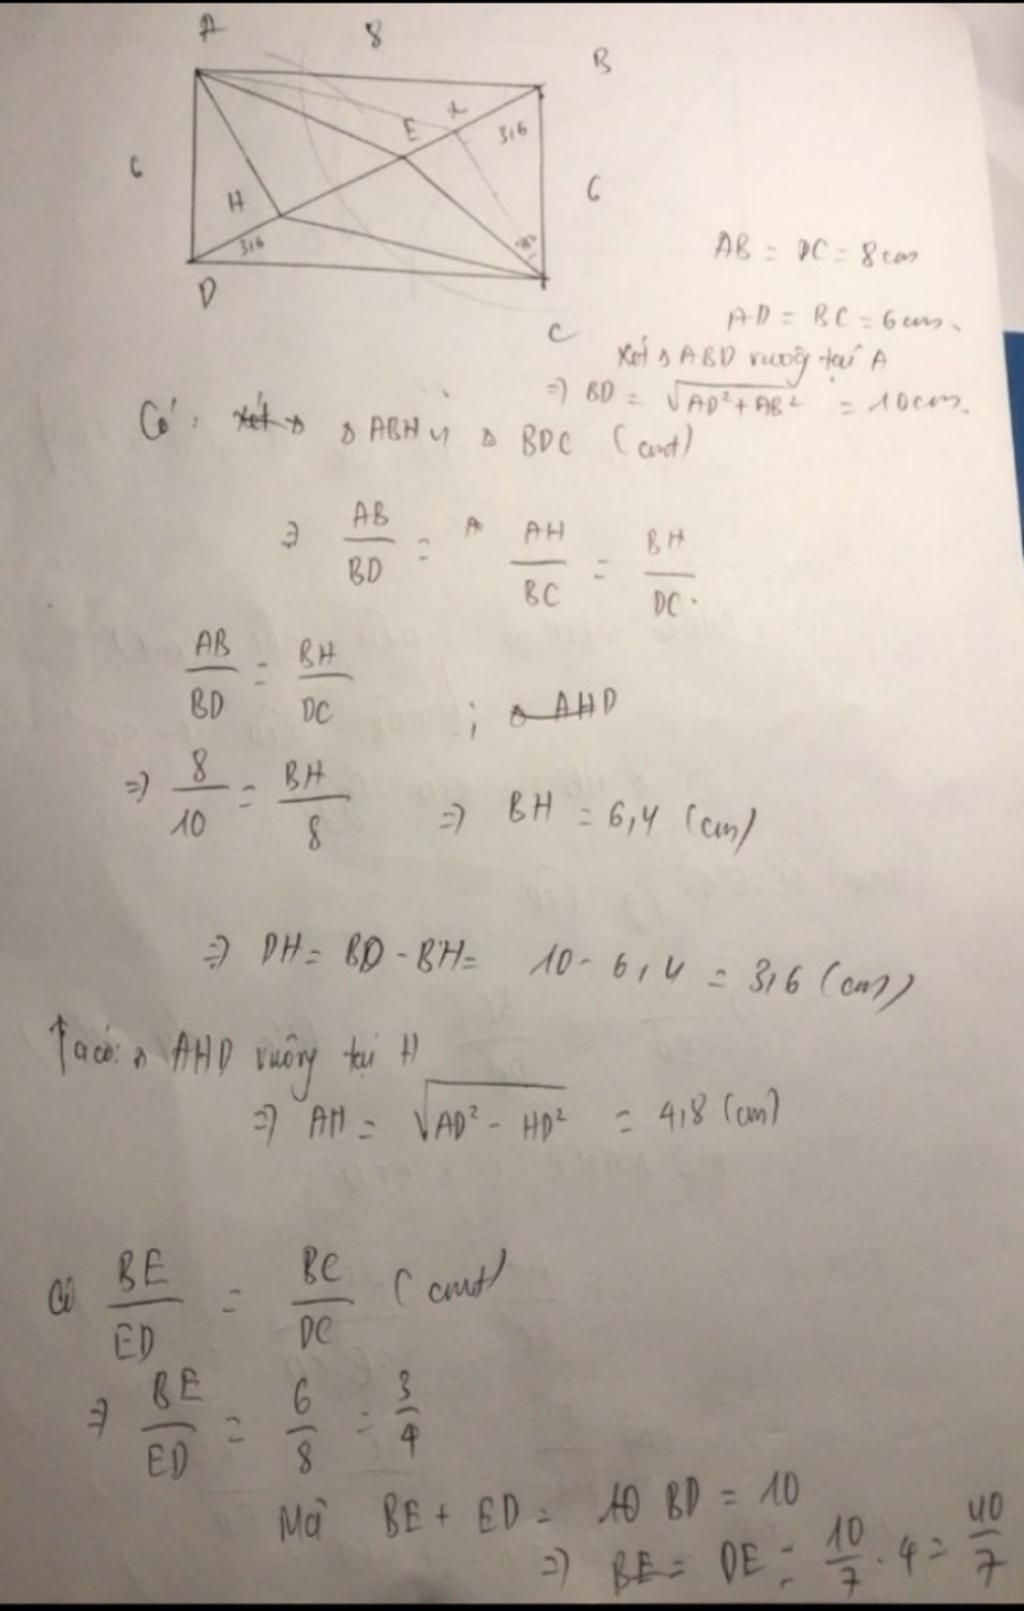 A 8 B
E K
3,6
6 H 6
3,6
D C
AB = DC = 8cm
AD = BC = 6cm.
Xét Δ ABD vuông tại A
=> BD = √AD² + AB² = 10cm.
Có: xét Δ Δ ABH ~ Δ BDC (cmt)
=> AB/BD = A AH/BC = BH/DC.
AB/BD = BH/DC ; Δ AHD
=> 8/10 = BH/8 => BH = 6,4 (cm)
=> DH = BD - BH = 10 - 6,4 = 3,6 (cm)
Ta có: Δ AHD vuông tại H
=> AH = √AD² - HD² = 4,8 (cm)
Có BE/ED = BC/DC (cmt)
=> BE/ED = 6/8 = 3/4
Mà BE + ED = 10 BD = 10
=> BE = DE = 10/7 . 4 = 40/7